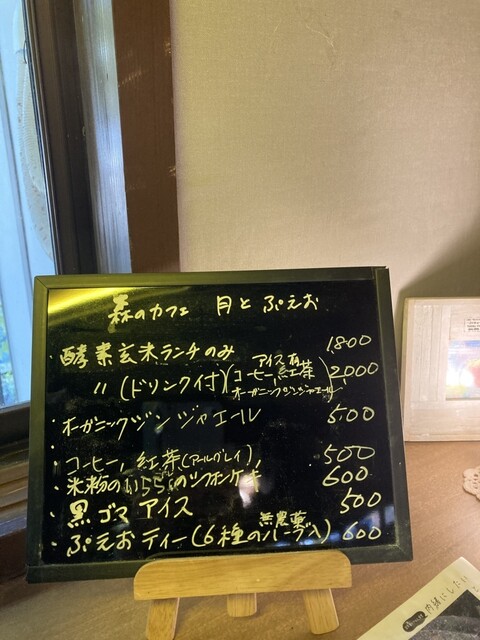 森のカフェ 月とぷえお
・酵素玄米ランチのみ 1800
アイス有
〃 (ドリンク付)(コーヒー, 紅茶 2000
オーガニックジンジャエール)
・オーガニックジンジャエール 500
・コーヒー, 紅茶(アールグレイ), 500
・米粉の シフォンケーキ 600
・黒ゴマアイス 500
無農薬
・ぷえおティー(6種のハーブ入) 600